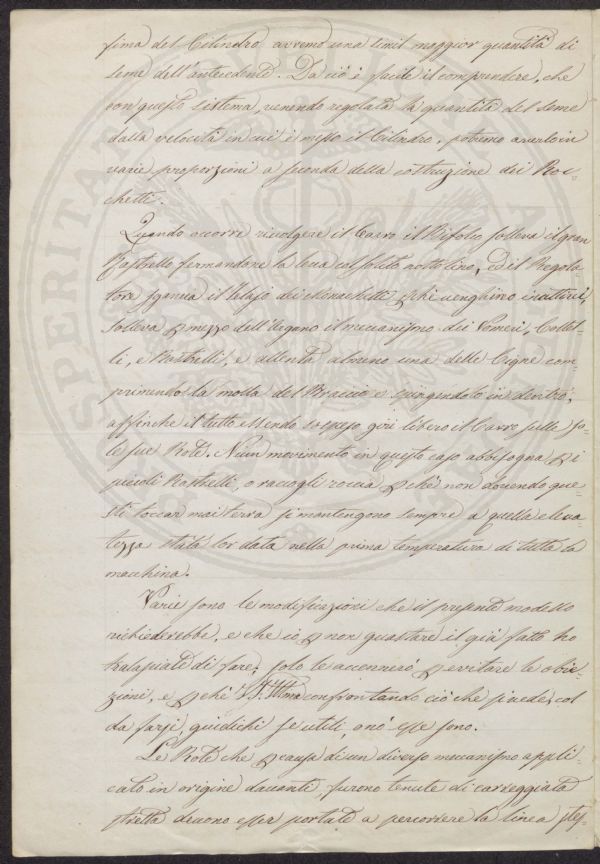 sima del Cilindro avremo una simil maggior quantità di
seme dell'antecedente. Da ciò è facile il comprendere, che
con questo sistema, venendo regolata la quantità del seme
dalla velocità in cui è messo il Cilindro, potremo averlo in
varie proporzioni a seconda della costruzione dei Roc-
chetti.
Quando occorre rivolgere il Carro il Bifolco solleva il gran
Rastrello fermandone la leva col solito nottolino, ed il Regola-
tore sgancia il Telajo dei Monachetti, pchè venghino inattivi,
solleva p mezzo dell'Argano il mecanismo dei Vomeri, Coltel-
li, e Rastrelli, e allenta almeno una delle Cigne com-
primendo la molla del Braccio e spingendolo in dentro;
affinchè il tutto essendo sospeso giri libero il Carro sulle so-
le sue Rote. Niun movimento in questo caso abbisogna p i
piccoli Rastrelli, o raccogli roccia, pchè non dovendo que-
sti toccar mai terra si mantengono sempre a quella eleva-
tezza stata lor data nella prima temperatura di tutta la
macchina.
Varie sono le modificazioni che il presente modello
richiederebbe, e che io p non guastare il già fatto ho
tralasciate di fare; solo le accennerò p evitare le obie-
zioni, e pchè confrontando ciò che si vede, col
da farsi, giudichi se utili, o nò esse sono.
Le Rote che p causa di un diverso mecanismo appli-
cato in origine davanti, furono tenute di carreggiata
stretta devono esser portate a percorrere la linea stes-
PROSPERITAS PUBLICA